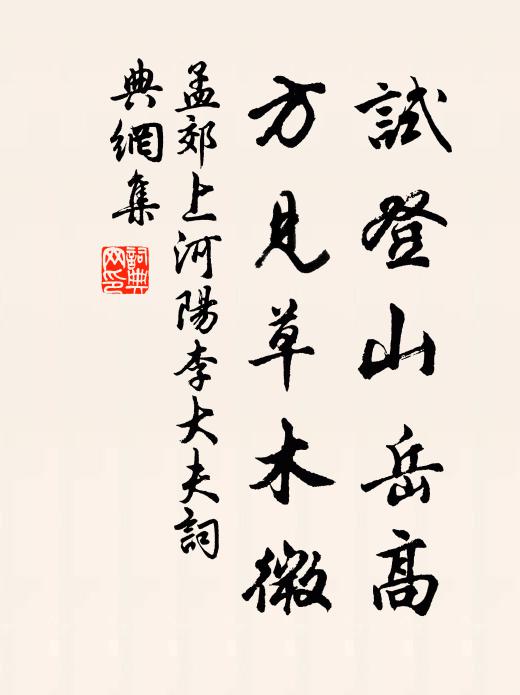 試登山岳高
方見草木微
孟郊上河陽李大夫詞
典網集
詞典
网印